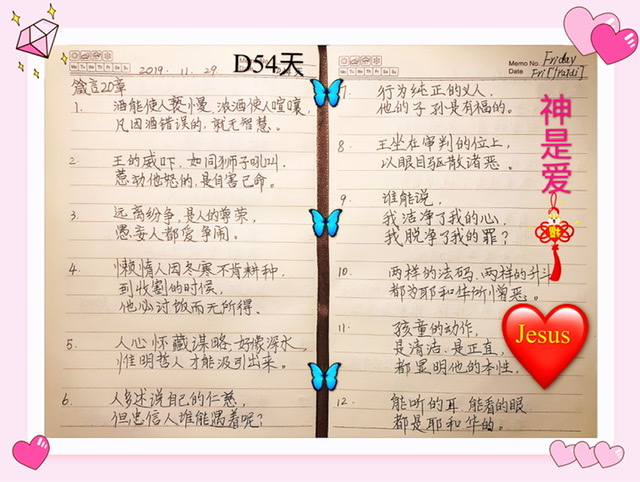 D54天
2019. 11. 29
箴言20章
1. 酒能使人亵慢，浓酒使人喧嚷，
凡因酒错误的，就无智慧。
2. 王的威吓，如同狮子吼叫，
惹动他怒的，是自害己命。
3. 远离纷争，是人的尊荣，
愚妄人都爱争闹。
4. 懒惰人因冬寒不肯耕种，
到收割的时候，
他必讨饭而无所得。
5. 人心怀藏谋略，好像深水，
惟明哲人才能汲引出来。
6. 人多述说自己的仁慈，
但忠信人谁能遇着呢？
Memo No. Friday
Date Fri
7. 行为纯正的义人，
他的子孙是有福的。
8. 王坐在审判的位上，
以眼目驱散诸恶。
9. 谁能说，
我洁净了我的心，
我脱净了我的罪？
10. 两样的法码、两样的升斗，
都为耶和华所憎恶。
11. 孩童的动作，
是清洁，是正直，
都显明他的本性。
12. 能听的耳，能看的眼，
都是耶和华的。
神是爱
Jesus